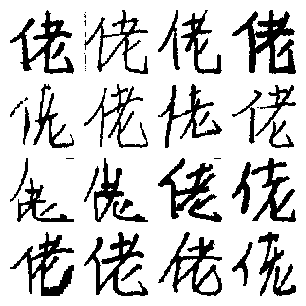 佬佬佬佬
佬佬佬佬
佬佬佬佬
佬佬佬佬